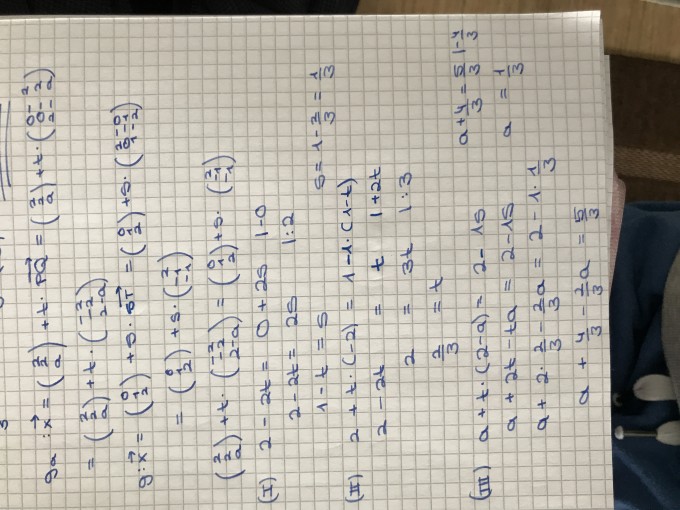 gₐ : x⃗ = (2 2 a) + t · PQ⃗ = (2 2 a) + t · (0-2 0-2 2-a)
= (2 2 a) + t · (-2 -2 2-a)
g : x⃗ = (0 1 2) + s · ST⃗ = (0 1 2) + s · (2-0 0-1 1-2)
= (0 1 2) + s · (2 -1 -1)
(2 2 a) + t · (-2 -2 2-a) = (0 1 2) + s · (2 -1 -1)
(I) 2 - 2t = 0 + 2s |-0
2 - 2t = 2s |:2
1 - t = s s = 1 - 2/3 = 1/3
(II) 2 + t · (-2) = 1 - 1 · (1-t)
2 - 2t = t |+2t
2 = 3t |:3
2/3 = t
(III) a + t · (2-a) = 2 - 1s a + 4/3 = 5/3 |-4/3
a + 2t - ta = 2 - 1s a = 1/3
a + 2 · 2/3 - 2/3 a = 2 - 1 · 1/3
a + 4/3 - 2/3 a = 5/3